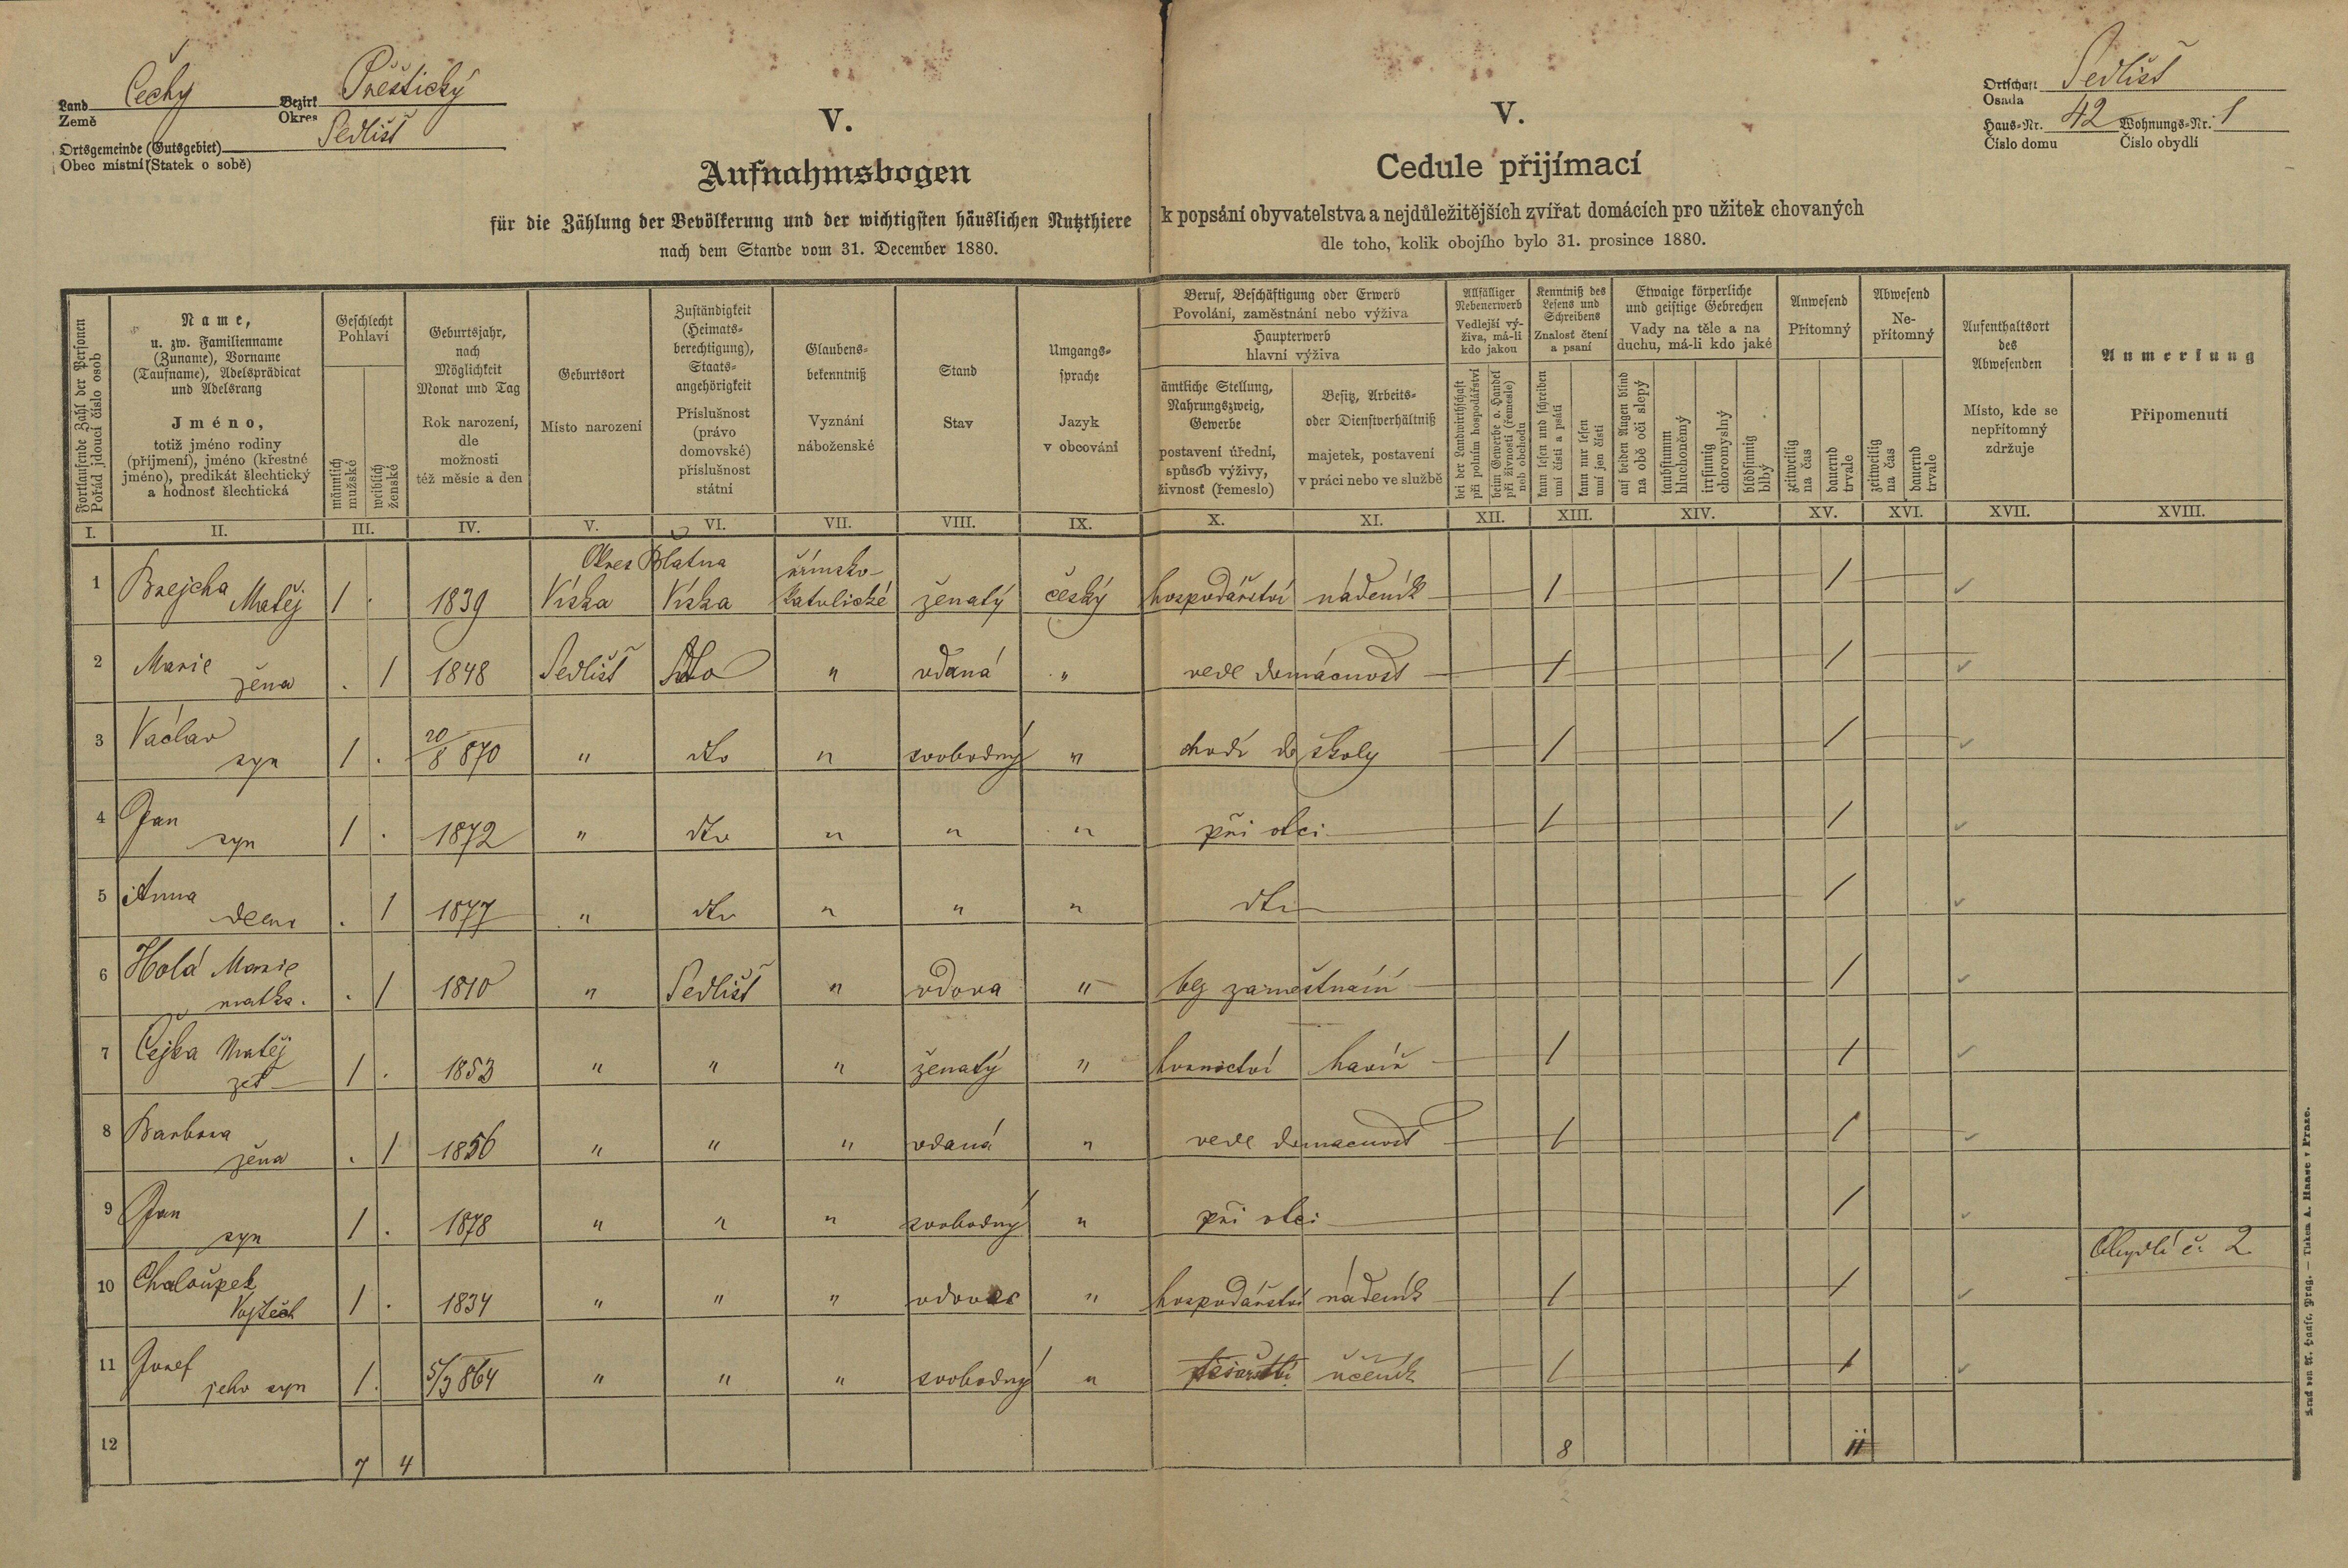 Land Čechy Bezirk Přeštický
Země Okres
Ortsgemeinde (Gutsgebiet) Sedlišť
Obec místní (Statek o sobě)
V.
Aufnahmsbogen
für die Zählung der Bevölkerung und der wichtigsten häuslichen Nutzthiere
nach dem Stande vom 31. December 1880.
V.
Cedule přijímací
k popsání obyvatelstva a nejdůležitějších zvířat domácích pro užitek chovaných
dle toho, kolik obojího bylo 31. prosince 1880.
Ortschaft Sedlišť
Osada
Haus-Nr. 42 Wohnungs-Nr. 1
Číslo domu Číslo obydlí
Fortlaufende Zahl der Personen
Pořád jdoucí číslo osob
Name,
u. zw. Familienname
(Zuname), Vorname
(Taufname), Adelsprädicat
und Adelsrang
Jméno,
totiž jméno rodiny
(příjmení), jméno (křestné
jméno), predikát šlechtický
a hodnosť šlechtická
Geschlecht
Pohlaví
männlich
mužské
weiblich
ženské
Geburtsjahr,
nach
Möglichkeit
Monat und Tag
Rok narození,
dle
možnosti
též měsíc a den
Geburtsort
Místo narození
Zuständigkeit
(Heimats-
berechtigung),
Staats-
angehörigkeit
Příslušnost
(právo
domovské)
příslušnost
státní
Glaubens-
bekenntniß
Vyznání
náboženské
Stand
Stav
Umgangs-
sprache
Jazyk
v obcování
Beruf, Beschäftigung oder Erwerb
Povolání, zaměstnání nebo výživa
Haupterwerb
hlavní výživa
ämtliche Stellung,
Nahrungszweig,
Gewerbe
postavení úřední,
spůsob výživy,
živnosť (řemeslo)
Besitz, Arbeits-
oder Dienstverhältniß
majetek, postavení
v práci nebo ve službě
Allfälliger
Nebenerwerb
Vedlejší vý-
živa, má-li
kdo jakou
bei der Landwirthschaft
při polním hospodářství
beim Gewerbe o. Handel
při živnosti (řemesle)
neb obchodu
Kenntniß des
Lesens und
Schreibens
Znalosť čtení
a psaní
kann lesen und schreiben
umí čísti a psáti
kann nur lesen
umí jen čísti
Etwaige körperliche
und geistige Gebrechen
Vady na těle a na
duchu, má-li kdo jaké
auf beiden Augen blind
na obě oči slepý
taubstumm
hluchoněmý
irrsinnig
choromyslný
blödsinnig
blbý
Anwesend
Přítomný
zeitweilig
na čas
dauernd
trvale
Abwesend
Ne-
přítomný
zeitweilig
na čas
dauernd
trvale
Aufenthaltsort
des
Abwesenden
Místo, kde se
nepřítomný
zdržuje
Anmerkung
Připomenutí
I. II. III. IV. V. VI. VII. VIII. IX. X. XI. XII. XIII. XIV. XV. XVI. XVII. XVIII.
Okres Blatna
1 Brejcha Matěj 1 . 1839 Víska Víska římsko-katolické ženatý český hospodářství nádeník 1 1
2 Marie žena . 1 1848 Sedlišť dto " vdaná " vede domácnosť 1 1
3 Václav syn 1 . 20/8 870 " dto " svobodný " chodí do školy 1 1
4 Jan syn 1 . 1872 " dto " " " při otci 1 1
5 Anna dcera . 1 1877 " dto " " " dto 1
6 Holá Marie matka . . 1 1810 " Sedlišť " vdova " bez zaměstnání 1
7 Čejka Matěj zeť 1 . 1853 " " " ženatý " havíř 1 1
8 Barbora žena . 1 1856 " " " vdaná " vede domacnosť 1 1
9 Jan syn 1 . 1878 " " " svobodný " při otci 1
Obydlí č. 2
10 Chaloupek Vojtěch 1 . 1834 " " " vdovec " hospodářství nádeník 1 1
11 Josef jeho syn 1 . 5/3 864 " " " svobodný " učeník 1 1
12 7 4 8 11
Druck von A. Haase, Prag. — Tiskem A. Haase v Praze.